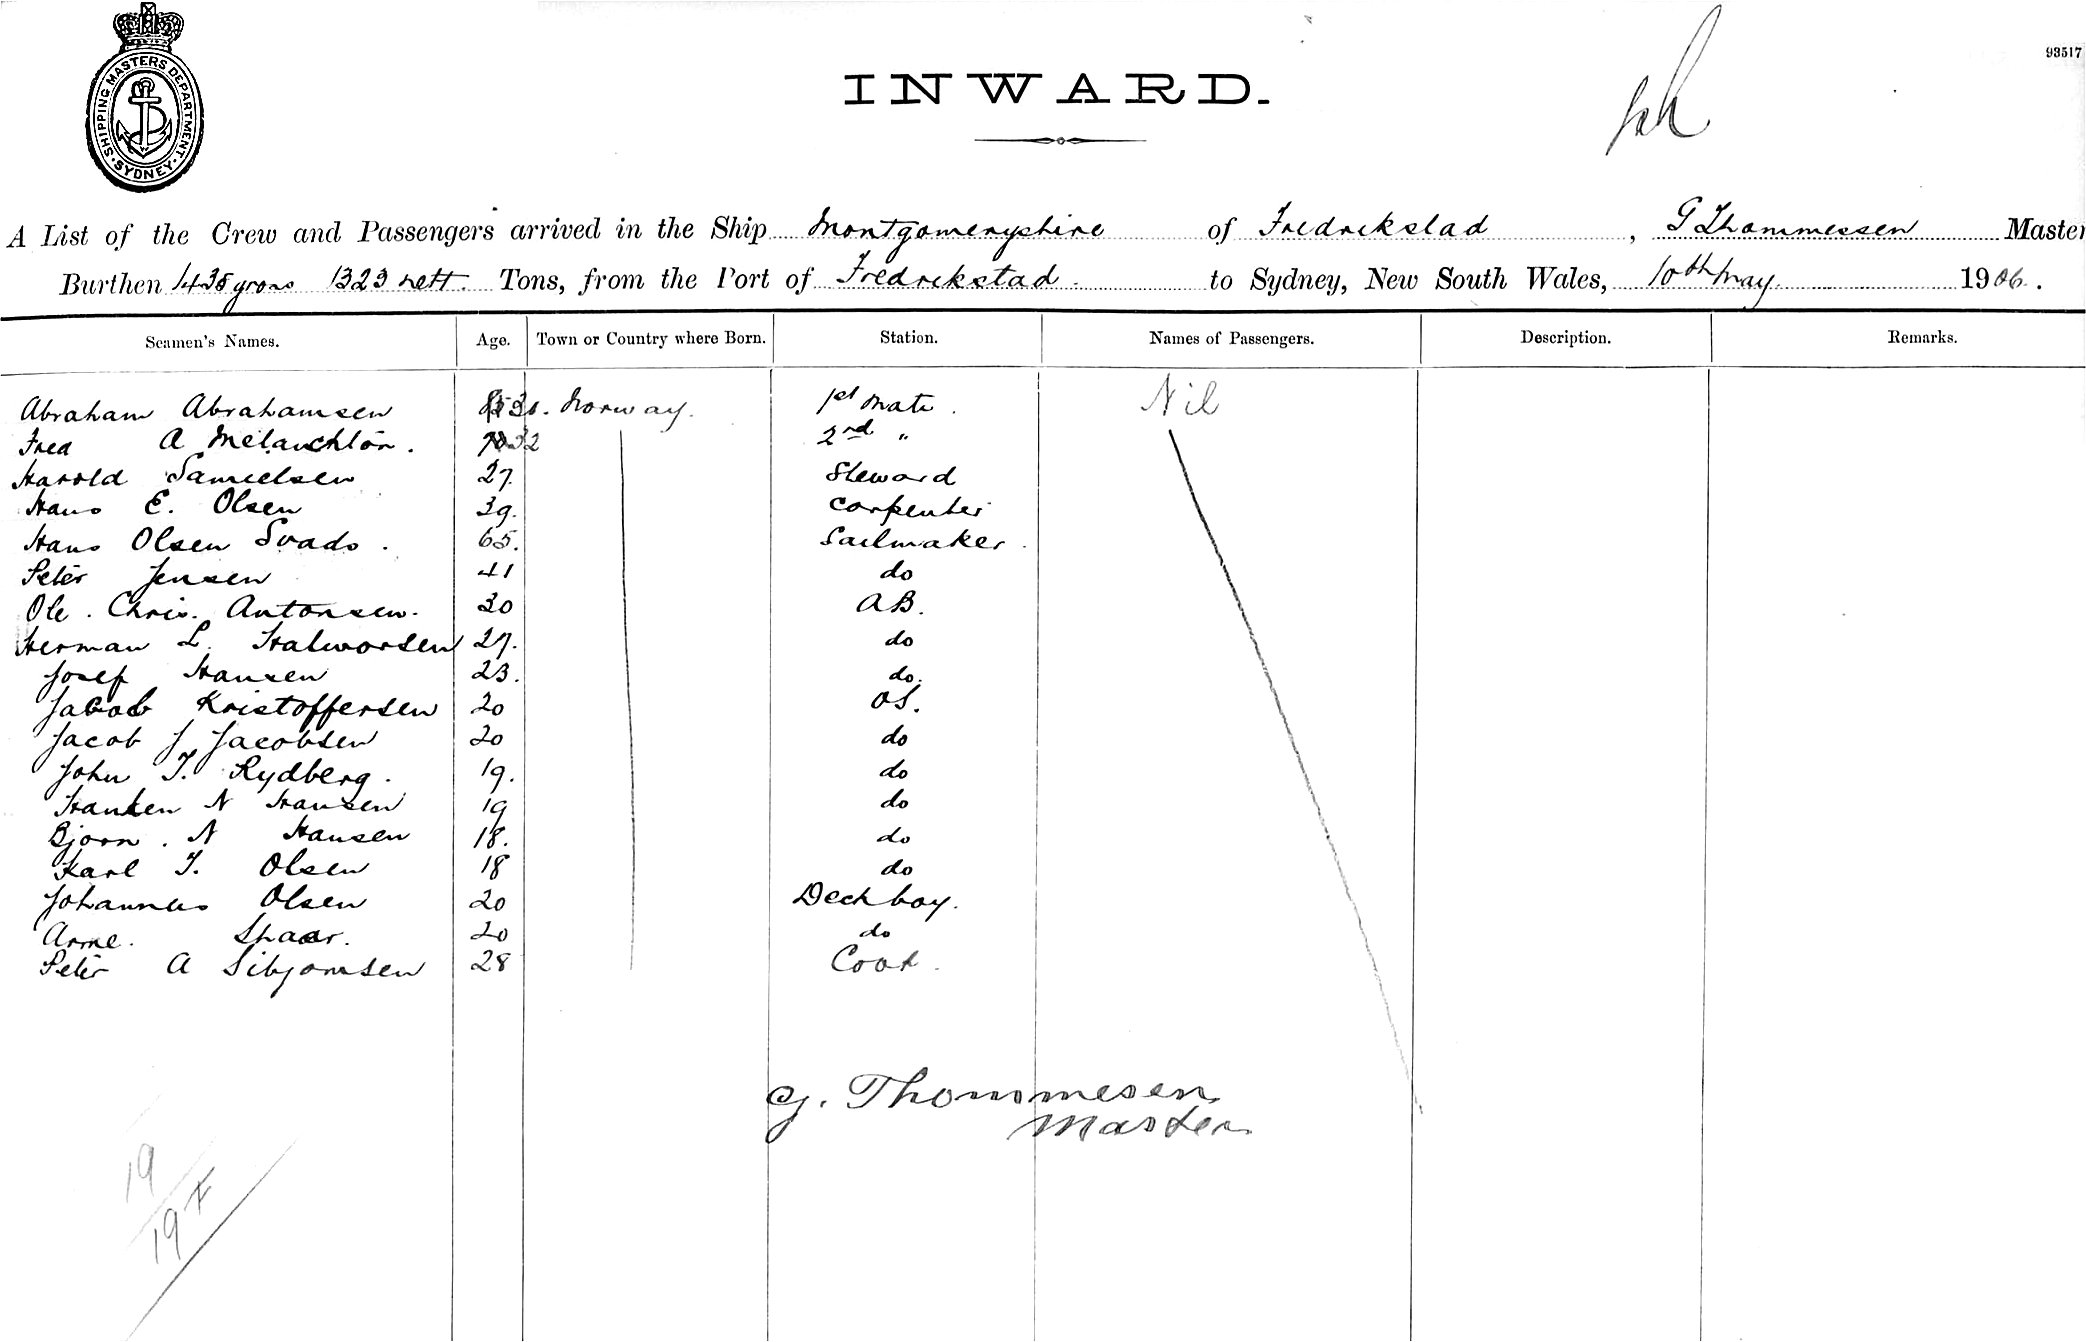 SHIPPING MASTERS DEPARTMENT. SYDNEY
93517
INWARD.
A List of the Crew and Passengers arrived in the Ship Montgomeryshire of Fredrekstad, G Thommessen Master
Burthen 1435 gross 1323 nett. Tons, from the Port of Fredrekstad. to Sydney, New South Wales, 10th May 1906.
Seamen's Names. Age. Town or Country where Born. Station. Names of Passengers. Description. Remarks.
Abraham Abrahamsen Norway. 1st Mate. Nil
Fred A Melanchton. 32 2nd "
Harold Samuelsen 27. Steward
Hans E. Olsen 39. Carpenter
Hans Olsen Svads. 65. Sailmaker.
Peter Jensen 41 do
Ole. Chris. Antonsen. 30 AB.
Herman L. Halworsen 27. do
Josef Hansen 23. do.
Jacob Kristoffersen 20 OS.
Jacob J Jacobsen 20 do
John T. Rydberg. 19. do
N Hansen 19 do
Bjorn. N Hansen 18. do
Karl T. Olsen 18 do
Johannes Olsen 20 Deck boy.
Arne. 20 do
Peter A 28 Cook.
G. Thommesen
Master
19
19 F